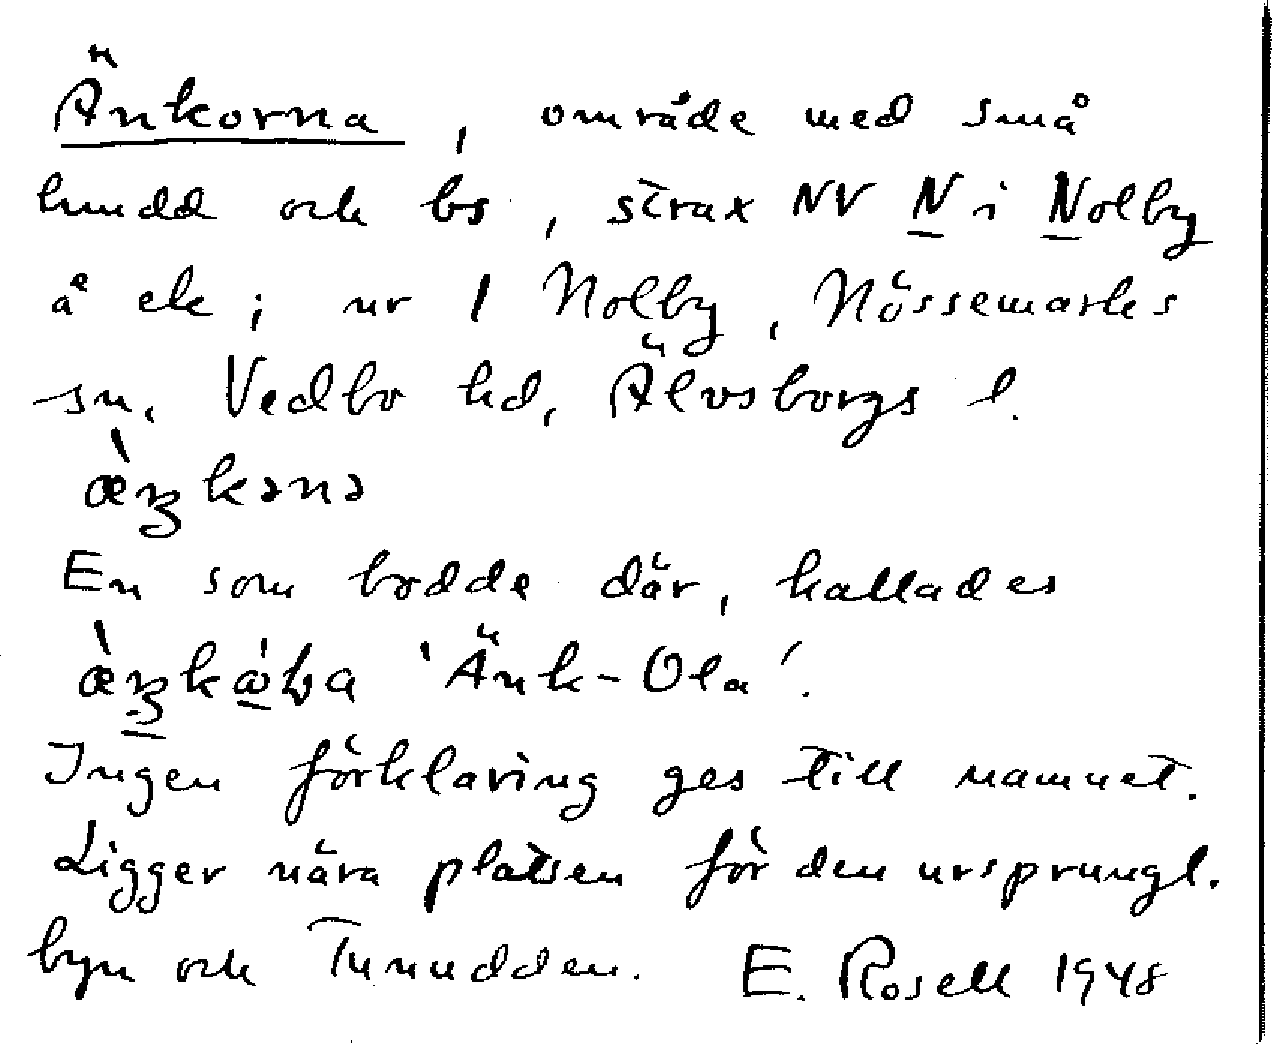 Änkorna, område med små
hmdd och bs, strax NV N i Nolby
å ek; nr 1 Nolby, Nössemarks
sn, Vedbo hd, Älvsborgs l.
æ̀ŋkənə
En som bodde där, kallades
'Änk-Ola'.
Ingen förklaring ges till namnet.
Ligger nära platsen för den ursprungl.
byn och Tunudden. E. Rosell 1948